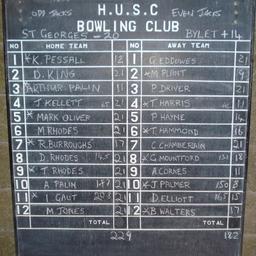 ODD JACKS H.U.S.C EVEN JACKS
BOWLING CLUB
ST GEORGES -20 BYLET +14
NO HOME TEAM NO AWAY TEAM
1 *K. PESSALL 12 1 G.EDDOWES 21
2 D. KING 21 2 *M PLANT 9
3 *ARTHUR PALIN 11 3 P.DRIVER 21
4 J KELLETT 21 4 *T HARRIS 11
5 *MARK OLIVER 21 5 P HAYNE 14
6 M RHODES 21 6 *T HAMMOND 16
7 *R.BURROUGHS 17 7 C.CHAMBERLAIN 21
8 D. RHODES 145 21 8 *G MOUNTFORD 131 18
9 *T RHODES 21 9 A.CORNES 11
10 A PALIN 21 10 *J.PALMER 150 8
11 *I. GAUT 21 11 D.ELLIOTT 15
12 M JONES 21 12 *B WALTERS 17
TOTAL TOTAL
229 182